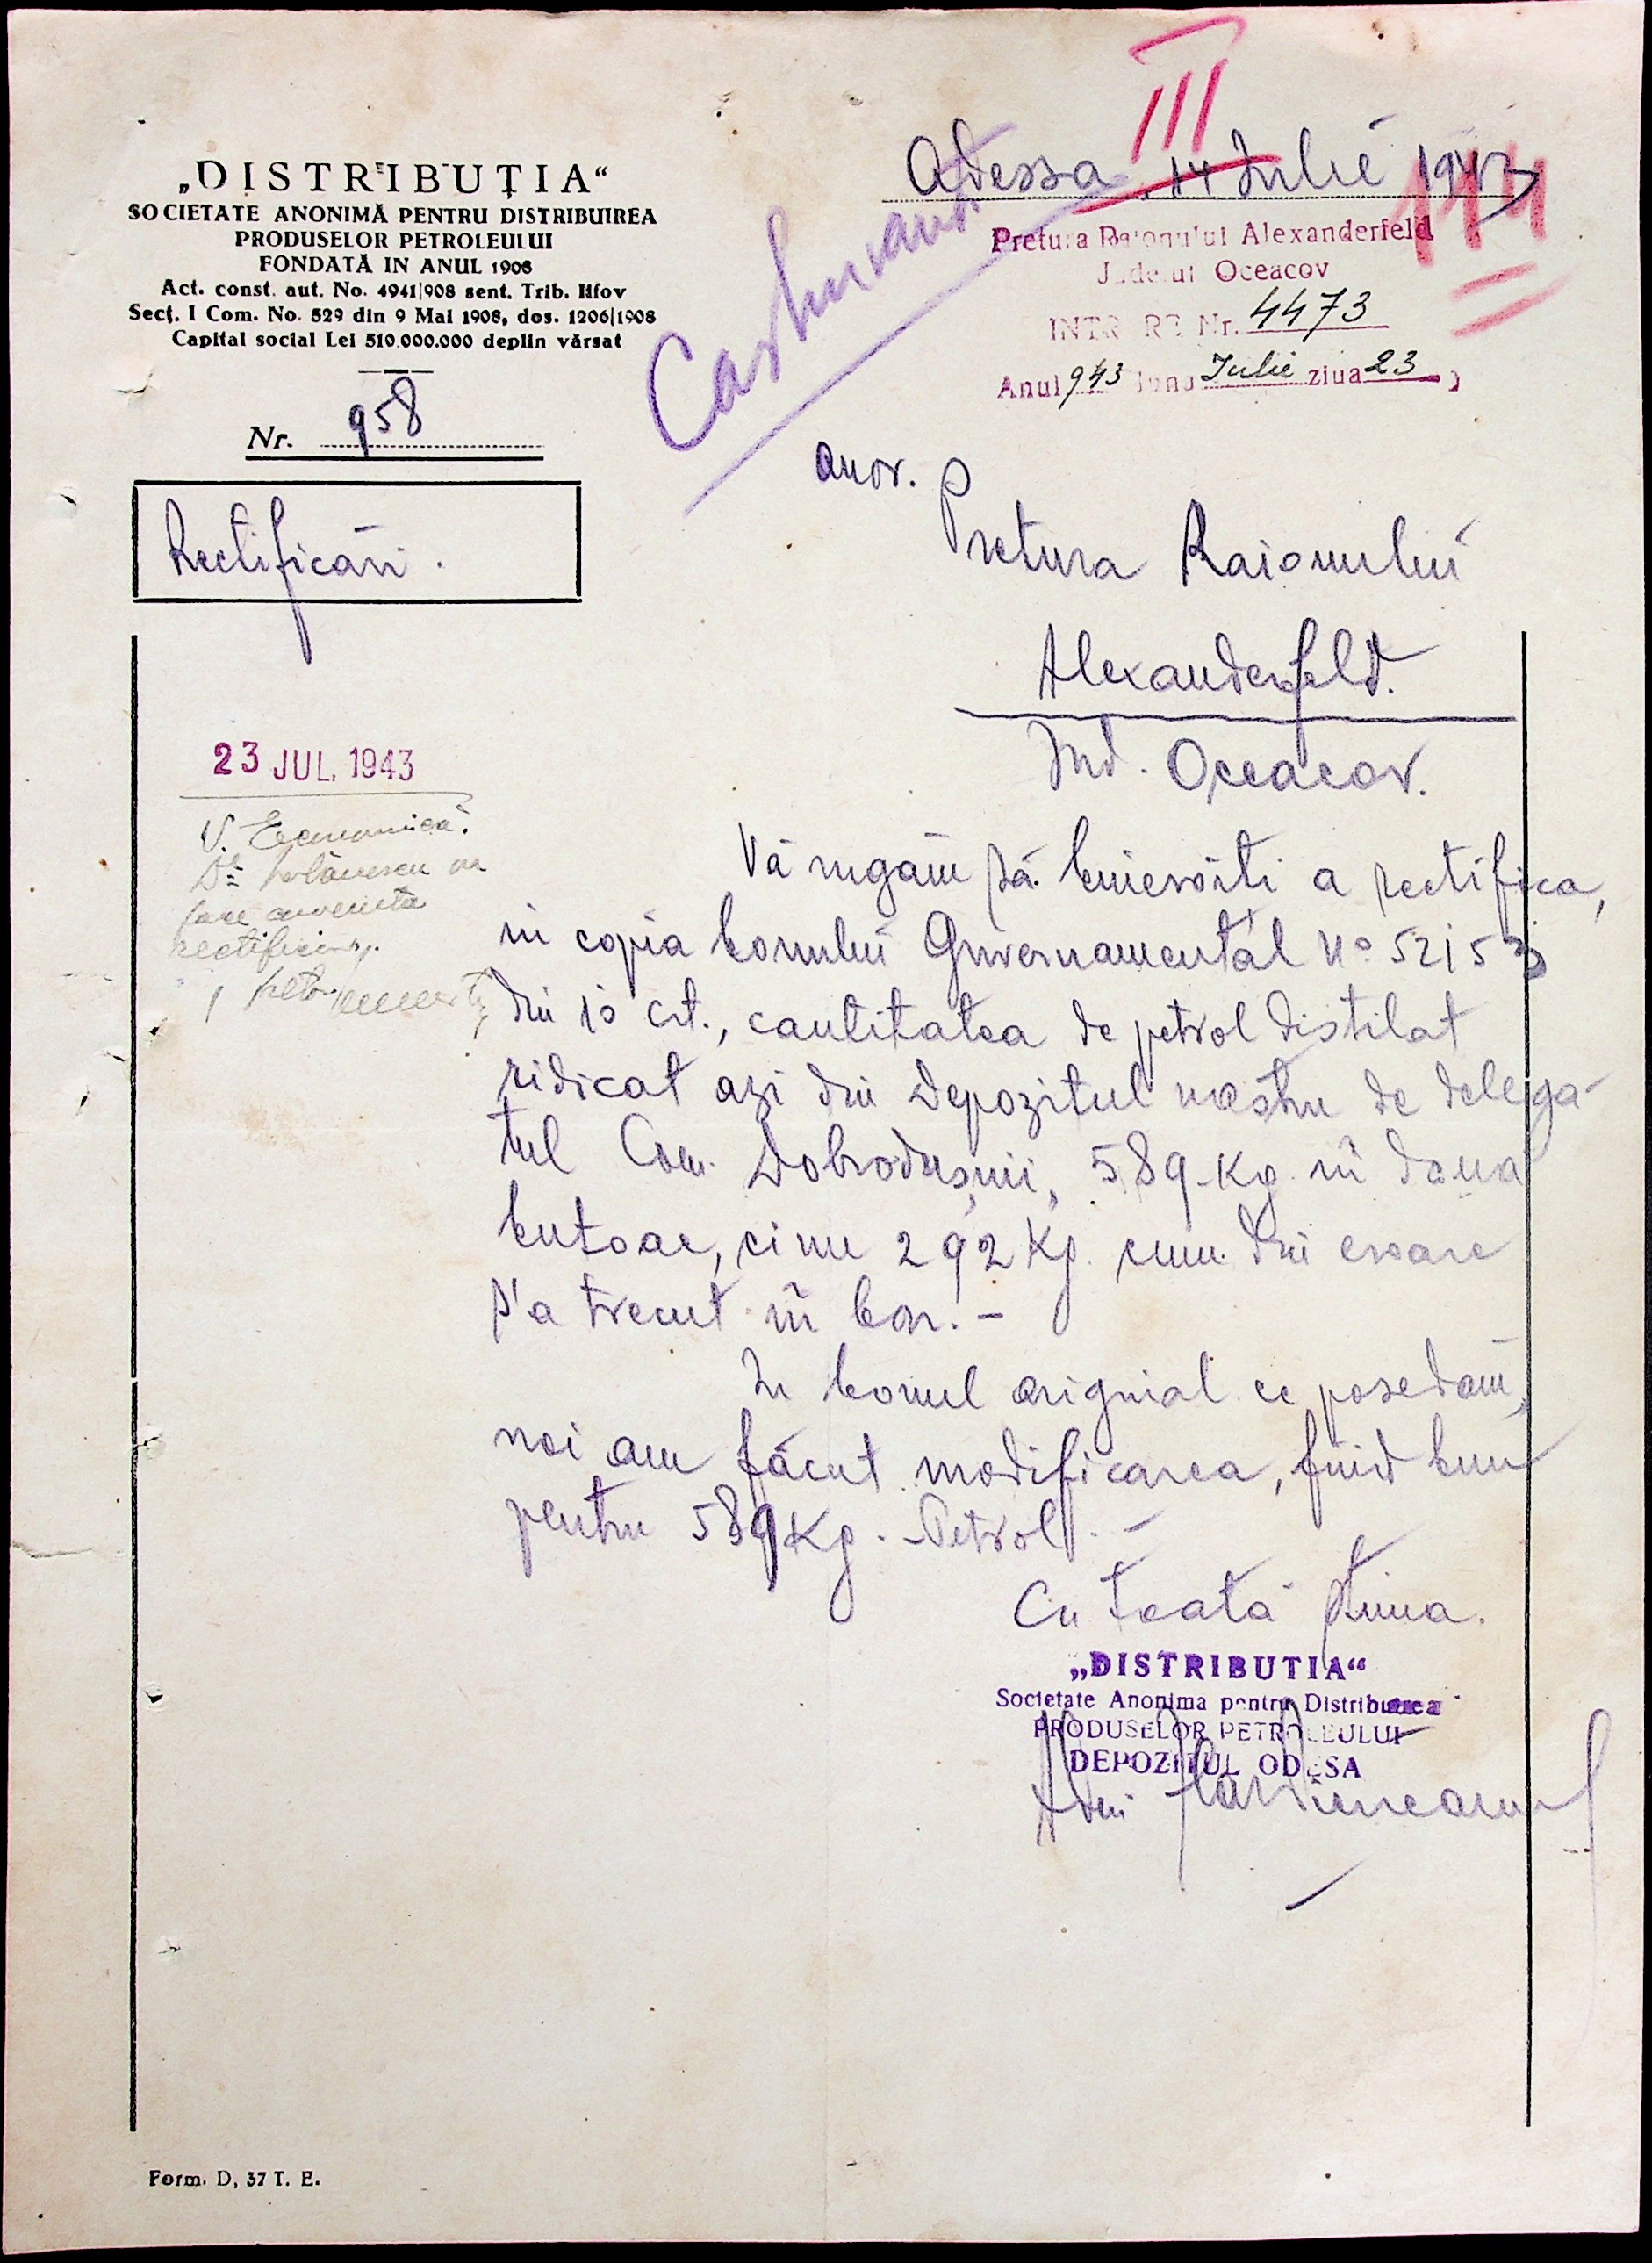 „DISTRIBUȚIA“
SOCIETATE ANONIMĂ PENTRU DISTRIBUIREA
PRODUSELOR PETROLEULUI
FONDATĂ IN ANUL 1908
Act. const. aut. No. 4941|908 sent. Trib. Ilfov
Secț. I Com. No. 529 din 9 Mai 1908, dos. 1206|1908
Capital social Lei 510.000.000 deplin vărsat
Nr. 958
Rectificări.
III
Odessa, 14 Iulie 1943
Pretura Raionului Alexanderfeld
Judetul Oceacov
INTRARE Nr. 4473
Anul 943 luna Iulie ziua 23
Onor.
Pretura Raionului
Alexanderfeld.
Jud. Oceacov.
23 JUL. 1943
V. Economică.
va
face cuvenita
Vă rugăm să binevoiti a rectifica,
in copia bonului Guvernamental No 52153
din 10 crt., cantitatea de petrol distilat
ridicat azi din Depozitul nostru de delega-
tul Com. Dobrodușnii, 589 Kg. in doua
butoae, si nu 292 Kg. cum din eroare
s'a trecut in bon. -
In bonul original ce posedăm,
noi am făcut modificarea, fiind bun
pentru 589 Kg. Petrol. -
Cu toată stima.
„DISTRIBUTIA“
Societate Anonima pentru Distribuirea
PRODUSELOR PETROLEULUI
DEPOZITUL ODESA
Form. D, 37 T. E.